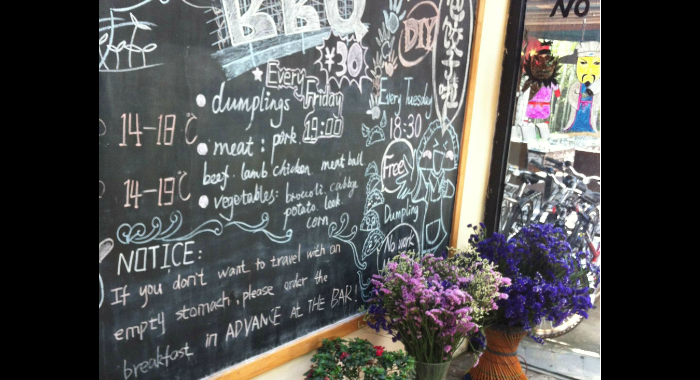 BBQ
¥30
★ Every Friday
19:00
dumplings
meat : pork
beef . lamb chicken meat ball
vegetables : broccoli. cabbage
potato. leek
corn
14-18℃
14-19℃
NOTICE:
If you don't want to travel with an
empty stomach . please order the
breakfast in ADVANCE AT THE BAR!
DIY
Every Tuesday
18:30
Free
Dumpling
No work
No